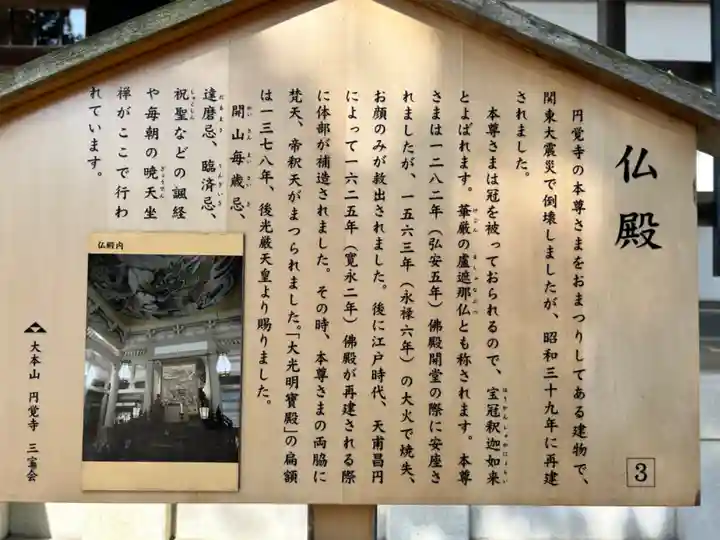 仏殿
円覚寺の本尊さまをおまつりしてある建物で、
関東大震災で倒壊しましたが、昭和三十九年に再建
されました。
本尊さまは冠を被っておられるので、宝冠釈迦如来
ほうかんしゃかにょらい
とよばれます。華厳の盧遮那仏とも称されます。本尊
けごん るしゃなぶつ
さまは一二八二年（弘安五年）佛殿開堂の際に安座さ
れましたが、一五六三年（永禄六年）の大火で焼失、
お顔のみが救出されました。後に江戸時代、天甫昌円
によって一六二五年（寛永二年）佛殿が再建される際
に体部が補造されました。その時、本尊さまの両脇に
梵天、帝釈天がまつられました。「大光明寶殿」の扁額
は一三七八年、後光厳天皇より賜りました。
開山毎歳忌、
かいさんまいさいき
達磨忌、臨済忌、
だるまき りんざいき
祝聖などの諷経
しゅくしん
や毎朝の暁天坐
ぎょうてん
禅がここで行わ
れています。
仏殿内
大本山 円覚寺 三宝会
3